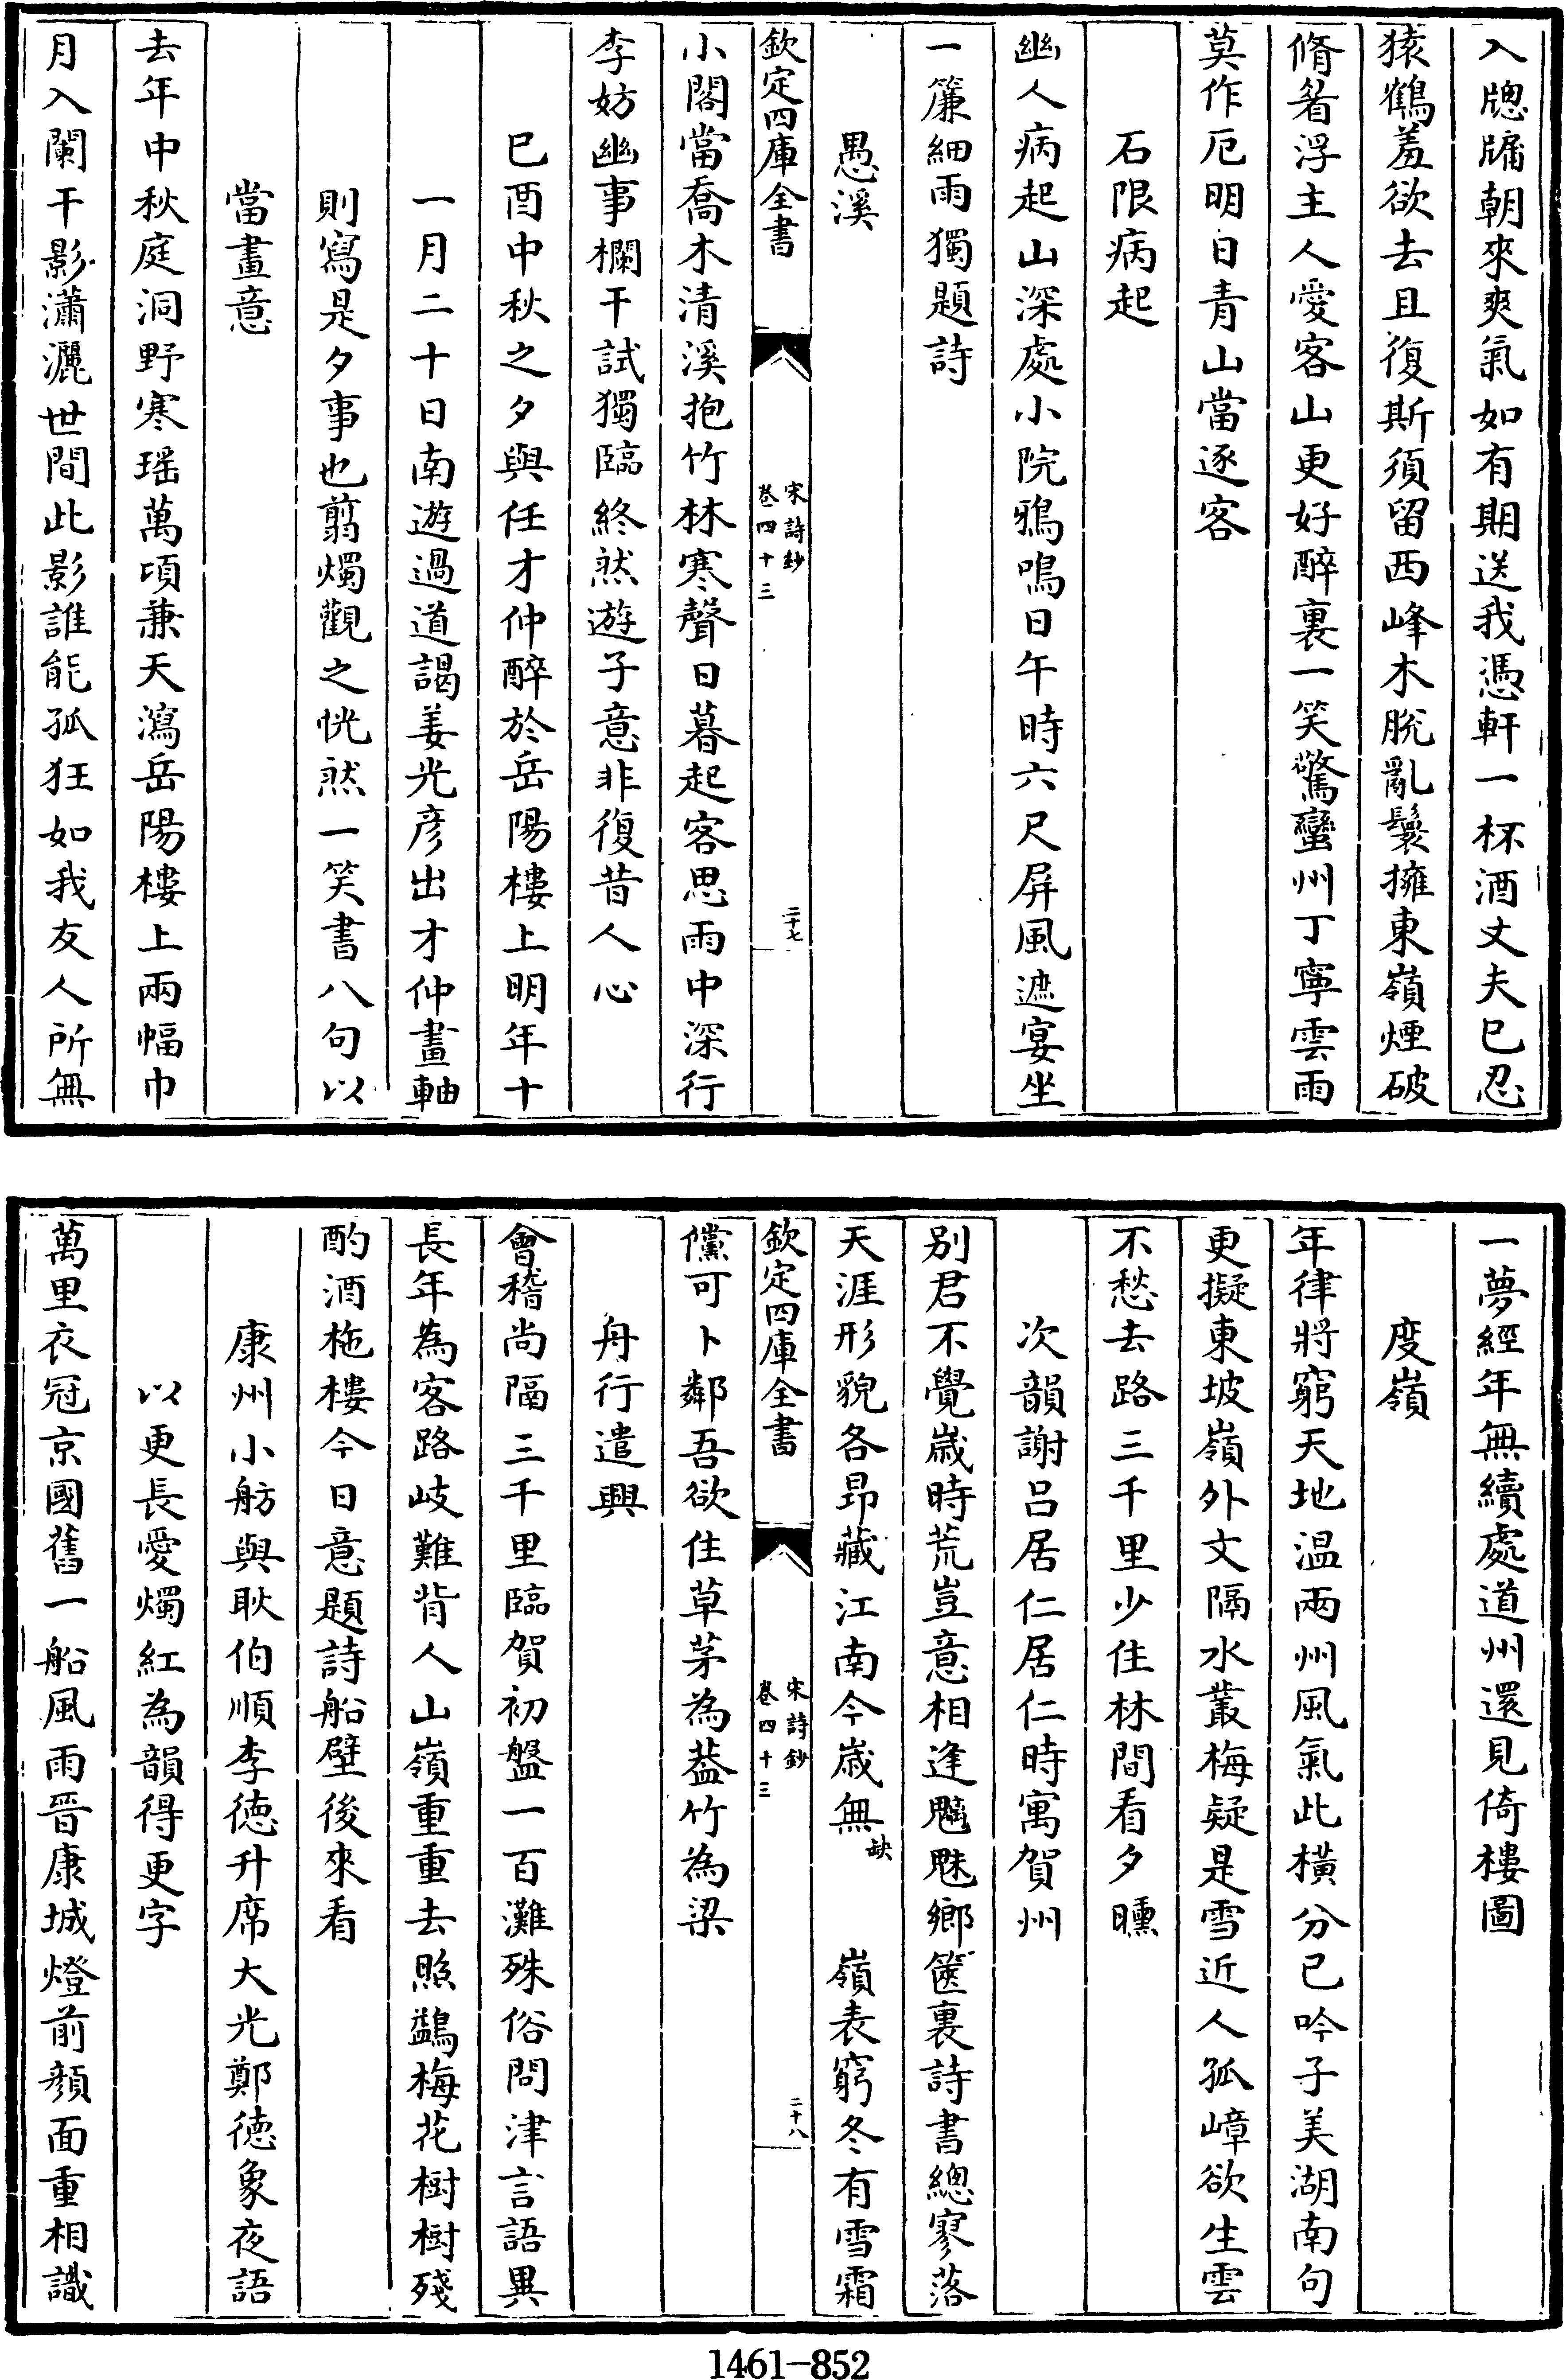 入牕牖朝來爽氣如有期送我憑軒一杯酒丈夫已忍
猿鶴羞欲去且復斯須留西峰木脫亂鬟擁東嶺煙破
脩眉浮主人愛客山更好醉裏一笑驚蠻州丁寧雲雨
莫作厄明日青山當逐客
石限病起
幽人病起山深處小院鴉鳴日午時六尺屏風遮宴坐
一簾細雨獨題詩
愚溪
欽定四庫全書
宋詩鈔
卷四十三
二十七
小閣當喬木清溪抱竹林寒聲日暮起客思雨中深行
李妨幽事欄干試獨臨終然遊子意非復昔人心
巳酉中秋之夕與任才仲醉於岳陽樓上明年十
一月二十日南遊過道謁姜光彦出才仲畫軸
則寫是夕事也翦燭觀之恍然一笑書八句以
當畫意
去年中秋庭洞野寒瑶萬頃兼天瀉岳陽樓上兩幅巾
月入闌干影瀟灑世間此影誰能孤狂如我友人所無
一夢經年無續處道州還見倚樓圖
度嶺
年律將窮天地温兩州風氣此橫分已吟子美湖南句
更擬東坡嶺外文隔水叢梅疑是雪近人孤嶂欲生雲
不愁去路三千里少住林間看夕曛
次韻謝吕居仁居仁時寓賀州
别君不覺歲時荒豈意相逢魑魅鄉篋裏詩書總寥落
天涯形貌各昂藏江南今歲無缺嶺表窮冬有雪霜
欽定四庫全書
宋詩鈔
卷四十三
二十八
儻可卜鄰吾欲住草茅為葢竹為梁
舟行遣興
會稽尚隔三千里臨賀初盤一百灘殊俗問津言語異
長年為客路岐難背人山嶺重重去照鷁梅花樹樹殘
酌酒柂樓今日意題詩船壁後來看
康州小舫與耿伯順李徳升席大光鄭徳象夜語
以更長愛燭紅為韻得更字
萬里衣冠京國舊一船風雨晉康城燈前顔面重相識
1461-852